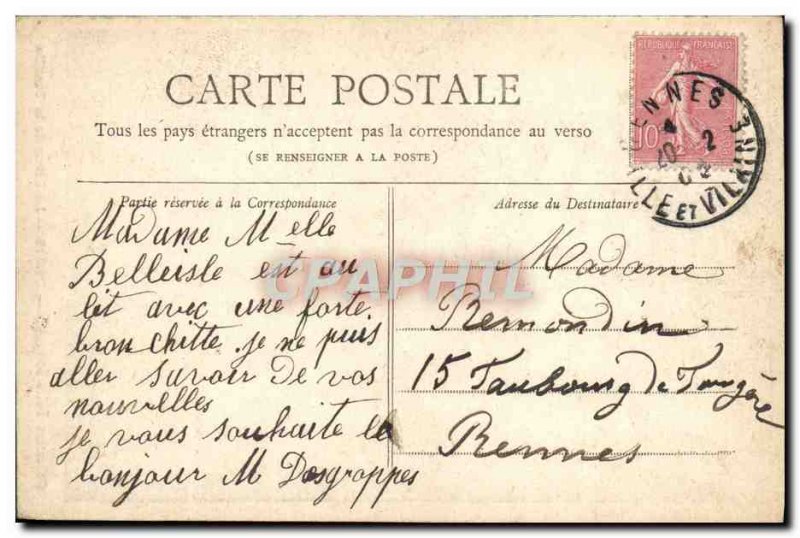 REPUBLIQUE FRANÇAISE
10
RENNES
20 2
ILLE ET VILAINE
CARTE POSTALE
Tous les pays étrangers n'acceptent pas la correspondance au verso
(SE RENSEIGNER A LA POSTE)
Partie réservée à la Correspondance
Madame Melle
Belleisle est au
lit avec une forte
bronchitte. je ne puis
aller savoir De vos
nouvelles
je vous souhaite le
bonjour M Desgroppes
Adresse du Destinataire
Madame
Remondin
15 Faubourg de Fougère
Rennes
CPAPHIL